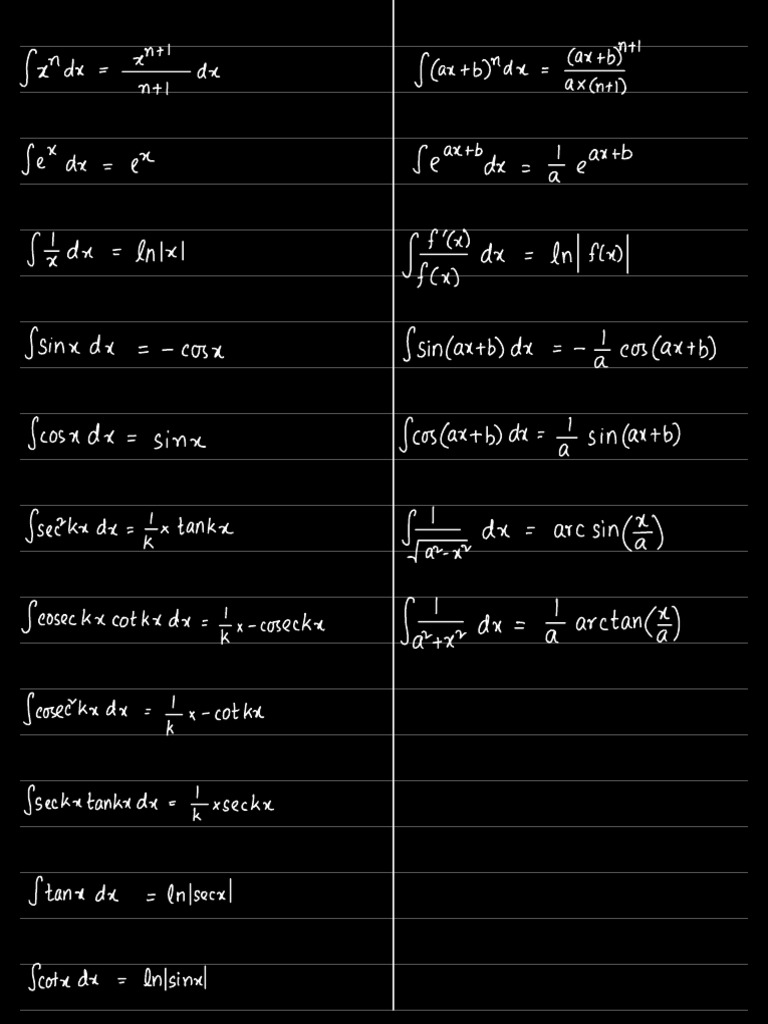 ∫xⁿ dx = xⁿ⁺¹/n+1 dx
∫eˣ dx = eˣ
∫1/x dx = ln|x|
∫sinx dx = - cosx
∫cosx dx = sinx
∫sec²kx dx = 1/k × tankx
∫coseckx cotkx dx = 1/k × -coseckx
∫cosec²kx dx = 1/k × -cotkx
∫seckxtankx dx = 1/k × seckx
∫tanx dx = ln|secx|
∫cotx dx = ln|sinx|
∫(ax+b)ⁿ dx = (ax+b)ⁿ⁺¹/a×(n+1)
∫e^ax+b dx = 1/a e^ax+b
∫f'(x)/f(x) dx = ln|f(x)|
∫sin(ax+b) dx = - 1/a cos(ax+b)
∫cos(ax+b) dx = 1/a sin(ax+b)
∫1/√a²-x² dx = arcsin(x/a)
∫1/a²+x² dx = 1/a arctan(x/a)